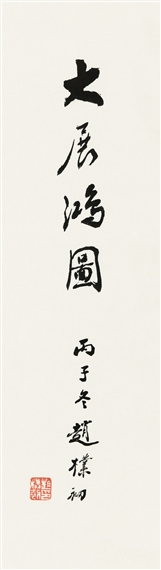 大展鴻圖
丙子冬趙樸初